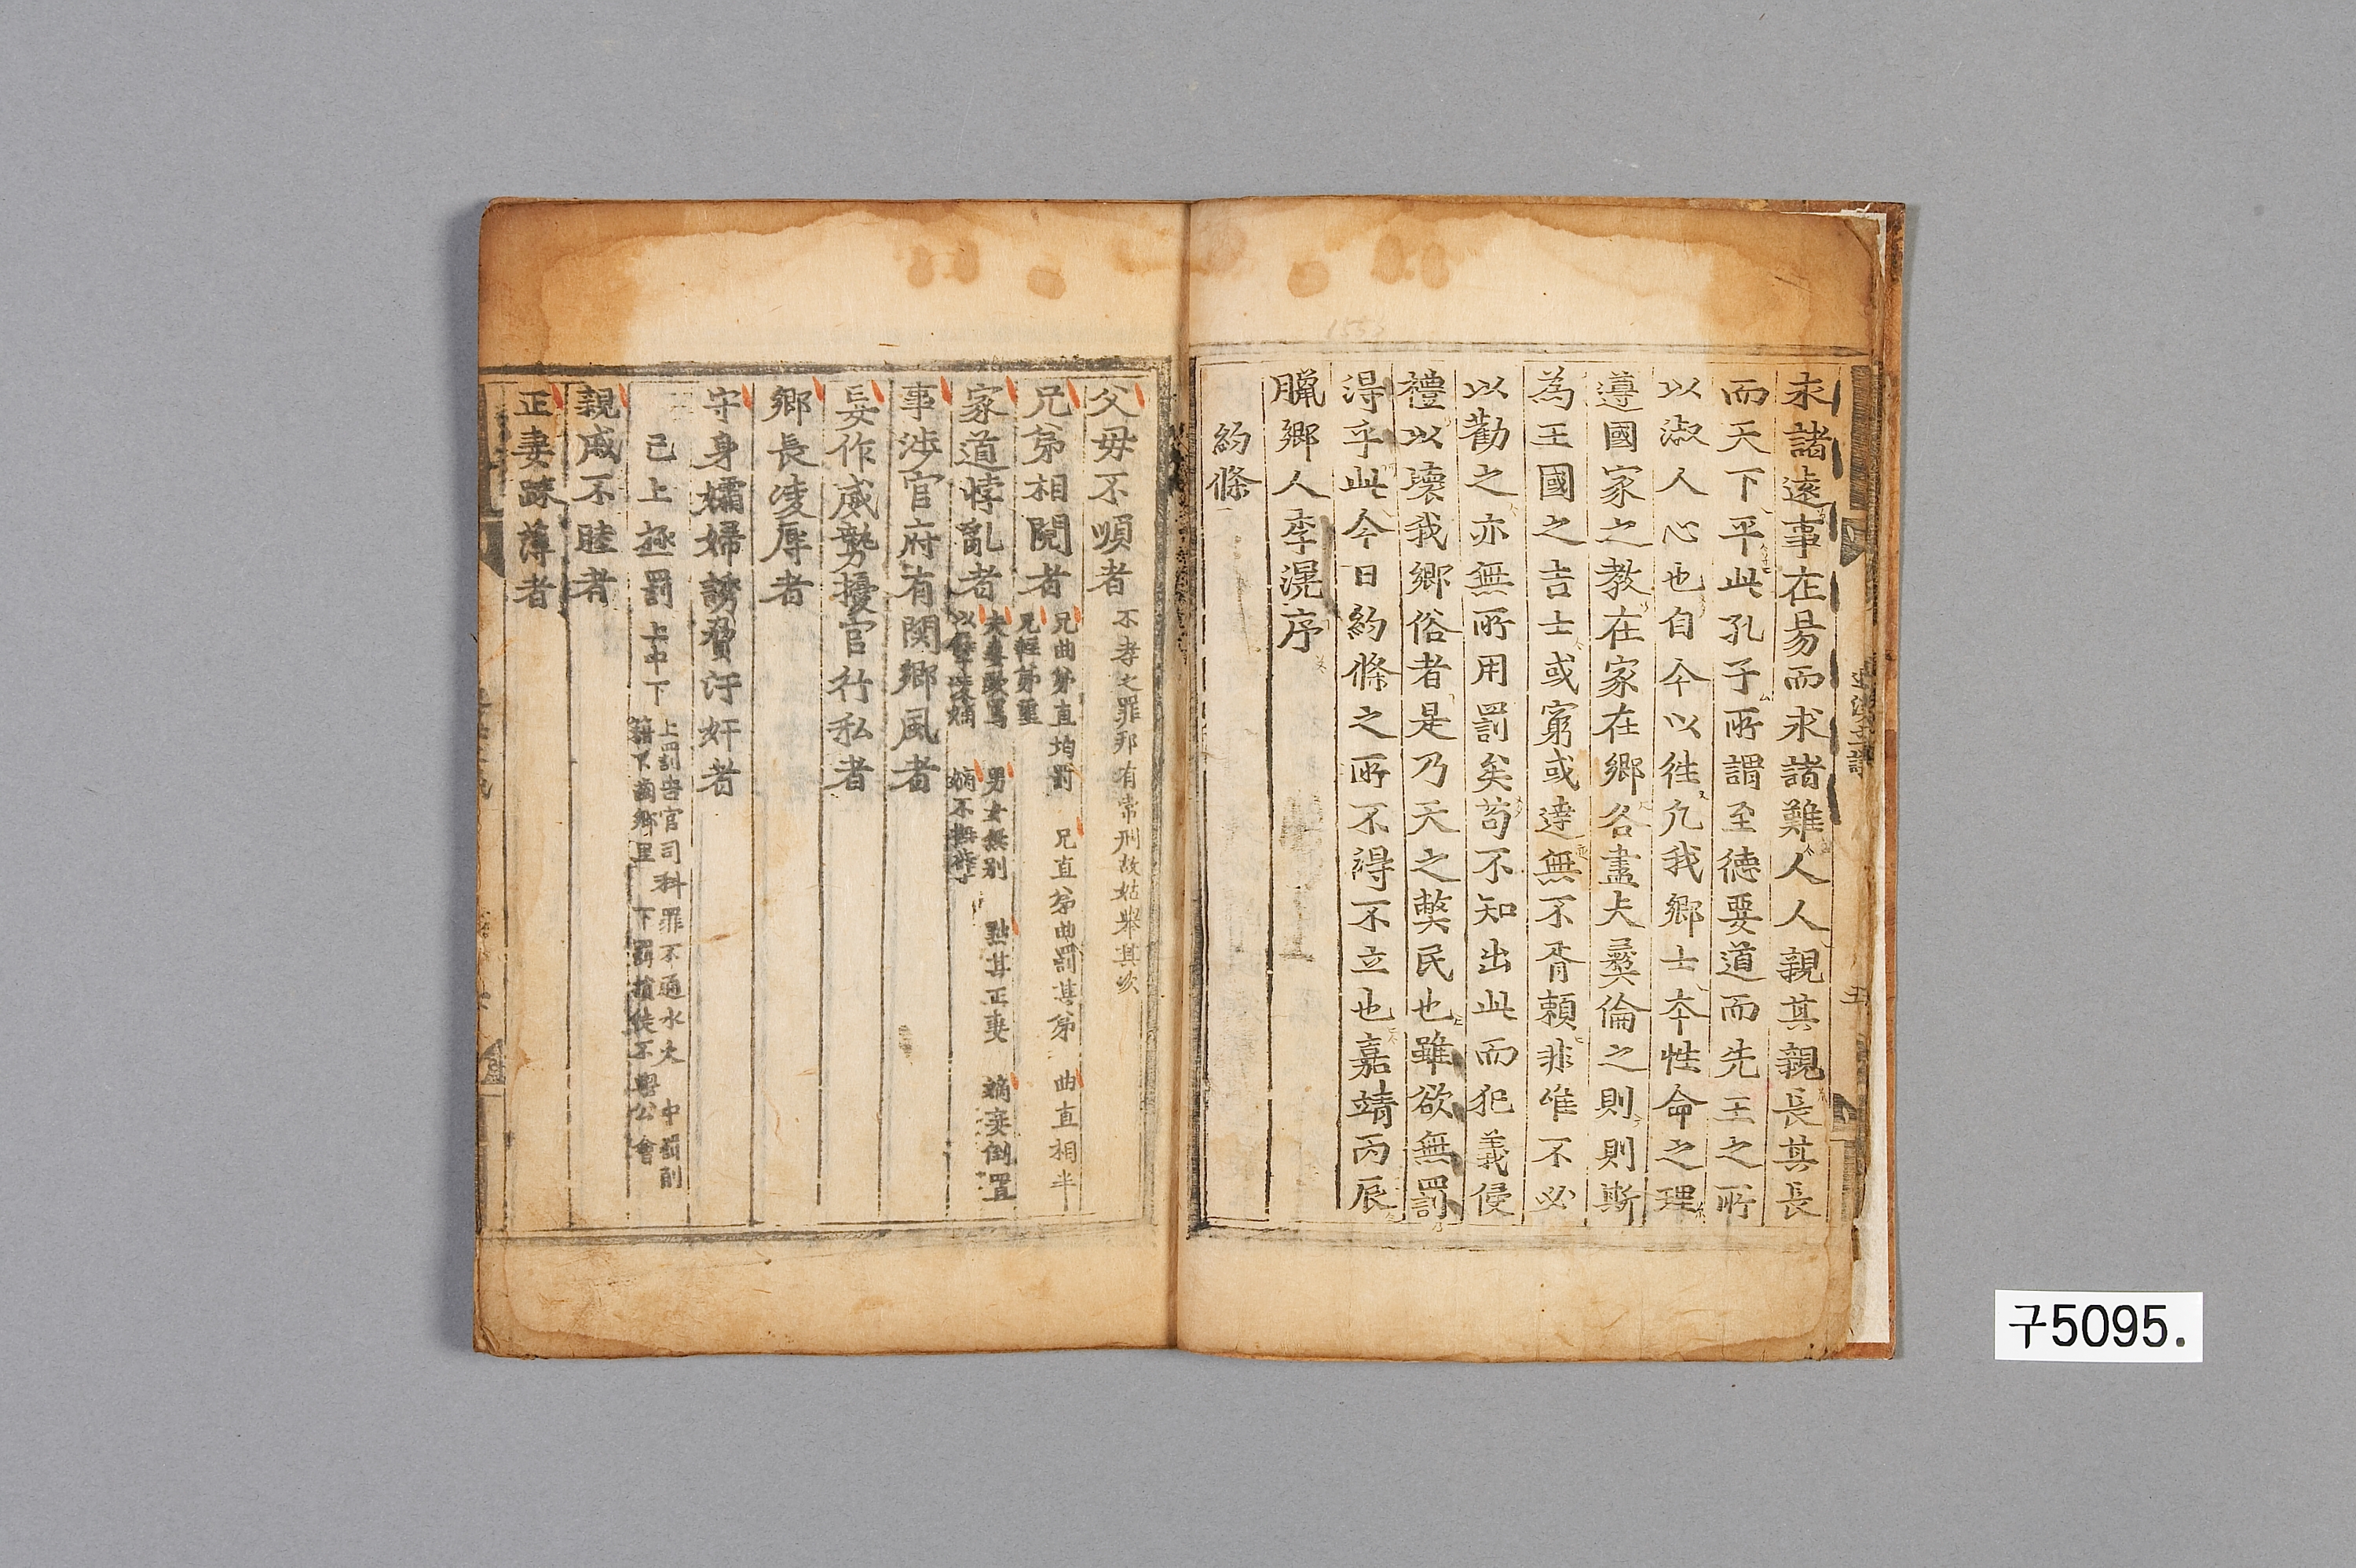 求諸遠事在易而求諸難人人親其親長其長
而天下平此孔子所謂至德要道而先王之所
以淑人心也自今以徃凡我鄉士本性命之理
遵國家之教在家在鄉各盡夫彛倫之則則斯
為王國之吉士或窮或達無不胥賴非唯不必
以勸之亦無所用罰矣苟不知出此而犯義侵
禮以壞我鄉俗者是乃天之獘民也雖欲無罰
得乎此今日約條之所不得不立也嘉靖丙辰
臘鄉人李滉序
約條
父母不順者 不孝之罪邦有常刑故姑舉其次
兄弟相鬩者 兄曲弟直均罰 兄直弟曲罰其弟 曲直相半
兄輕弟重
家道悖亂者 夫妻敺罵 男女無別 黜其正妻 嫡妾倒置
以孽凌嫡 嫡不撫孽
事涉官府有関鄉風者
妄作威勢擾官行私者
鄉長凌辱者
守身孀婦誘脅汙奸者
已上極罰上中下 上罰告官司科罪不通水火 中罰削
籍不齒鄉里 下罰損徒不與公會
親戚不睦者
正妻踈薄者
구5095.